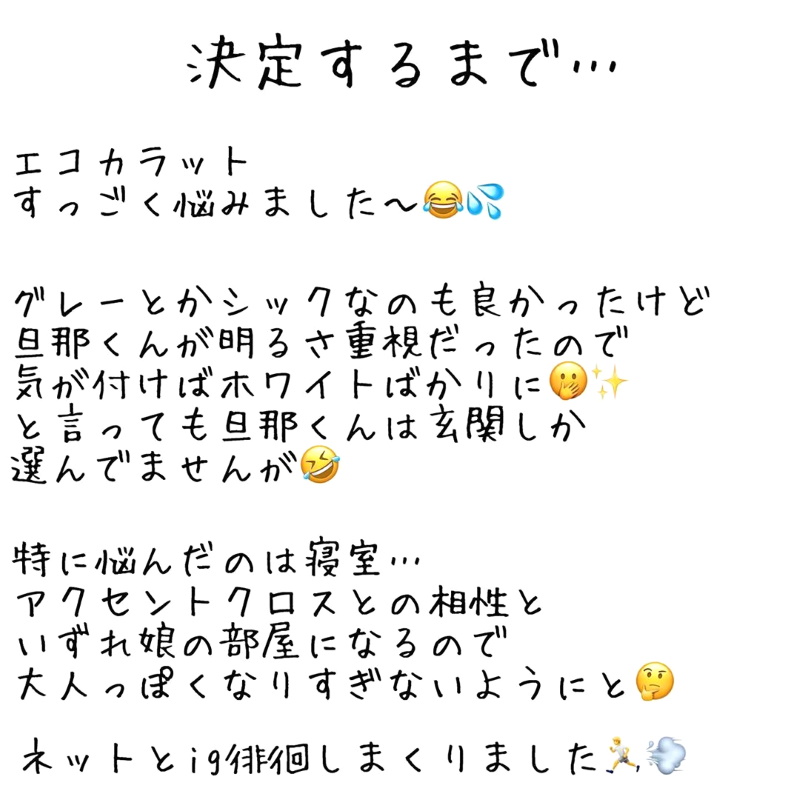 決定するまで…
エコカラット
すっごく悩みました〜😂💦
グレーとかシックなのも良かったけど
旦那くんが明るさ重視だったので
気が付けばホワイトばかりに🤭✨
と言っても旦那くんは玄関しか
選んでませんが🤣
特に悩んだのは寝室…
アクセントクロスとの相性と
いずれ娘の部屋になるので
大人っぽくなりすぎないようにと🤔
ネットとig徘徊しまくりました🏃💨